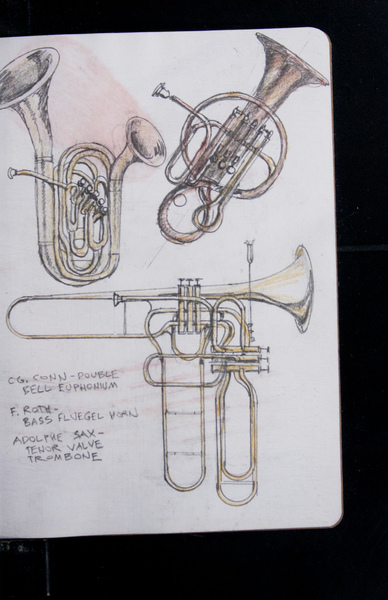 CG. CONN - DOUBLE
BELL EUPHONIUM
F. ROTH -
BASS FLUEGEL HORN
ADOLPHE SAX -
TENOR VALVE
TROMBONE